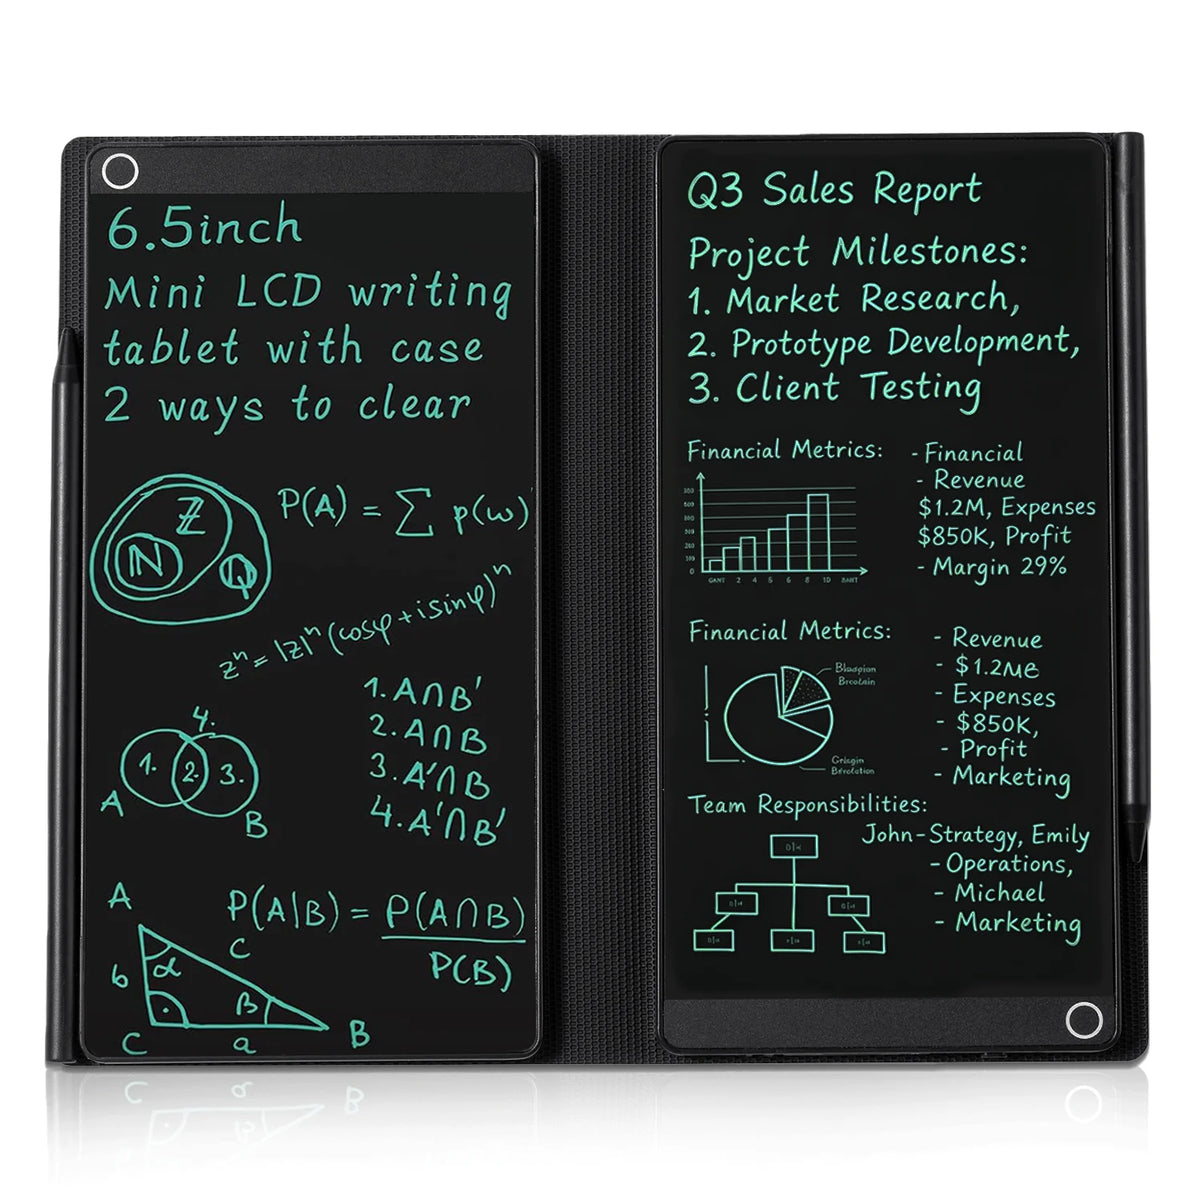 6.5inch
Mini LCD writing
tablet with case
2 ways to clear
Z
N
Q
P(A) = ∑ p(ω)
zⁿ = |z|ⁿ (cosφ + i sinφ)ⁿ
4.
1. 2. 3.
A
B
1. A∩B'
2. A∩B
3. A'∩B
4. A'∩B'
P(A|B) = P(A∩B)
P(B)
A
b
α
c
β
C
a
B
Q3 Sales Report
Project Milestones:
1. Market Research,
2. Prototype Development,
3. Client Testing
Financial Metrics:
2 4 5 6 8 10
- Financial
- Revenue
$1.2M, Expenses
$850K, Profit
- Margin 29%
Financial Metrics:
- Revenue
- $1.2ME
- Expenses
- $850K,
- Profit
- Marketing
Team Responsibilities:
John-Strategy, Emily
-Operations,
- Michael
- Marketing